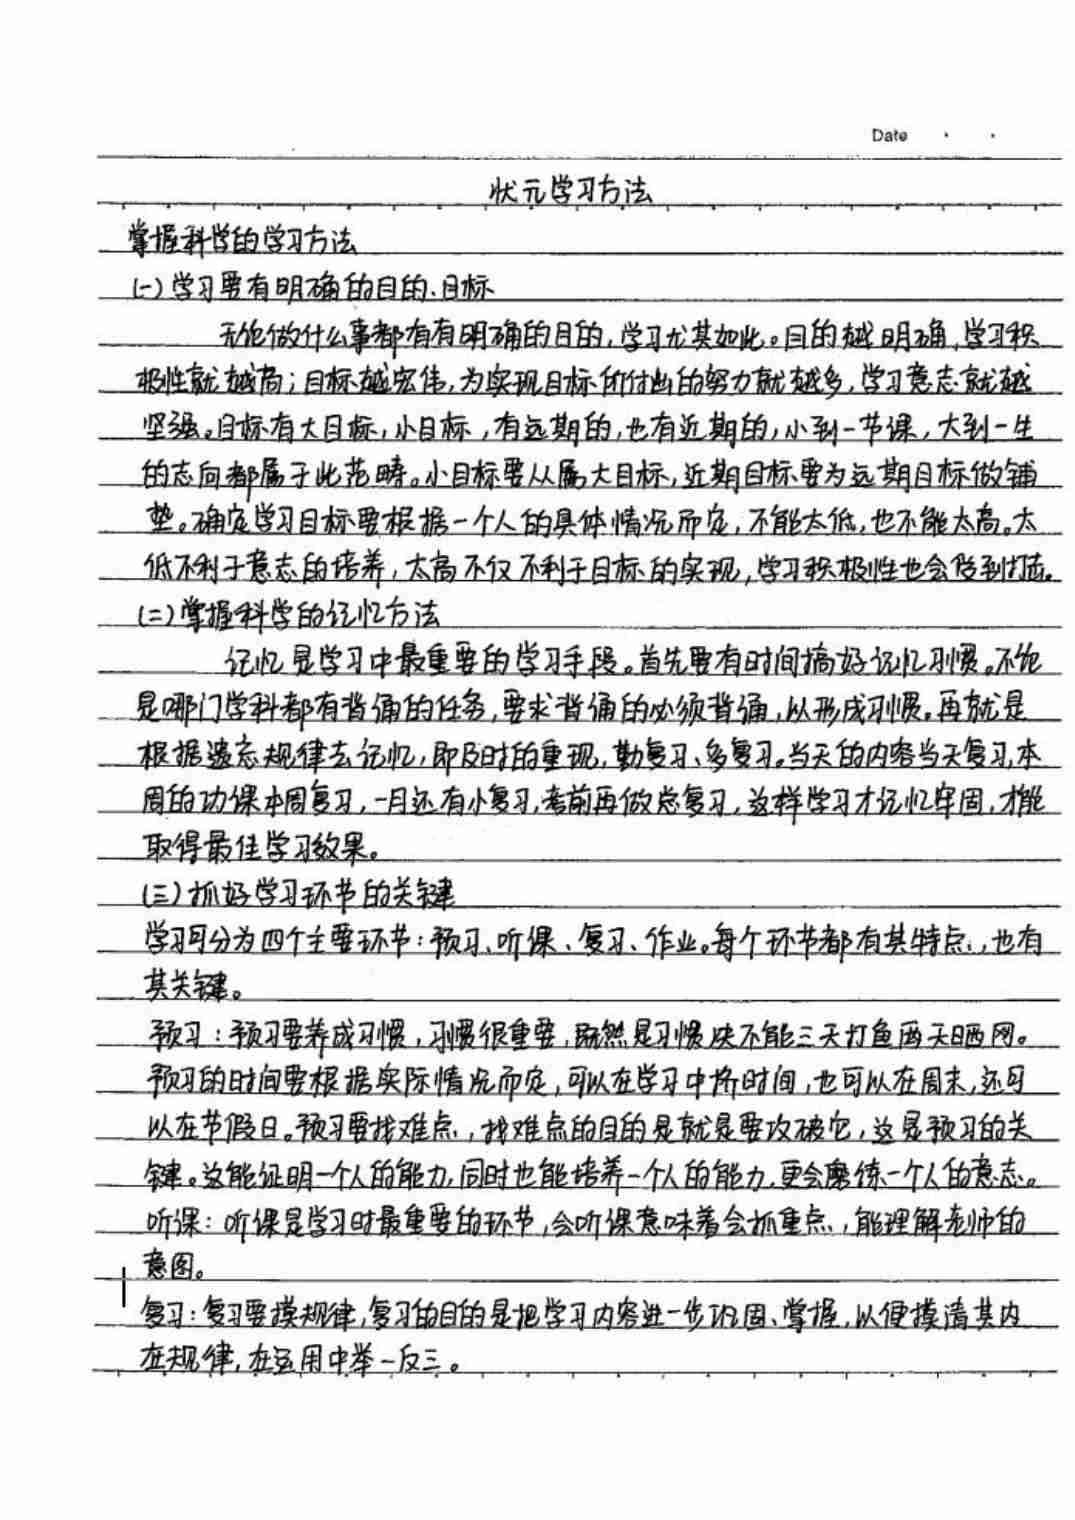 Date
状元学习方法
掌握科学的学习方法
(一)学习要有明确的目的、目标
无论做什么事都有有明确的目的,学习尤其如此。目的越明确,学习积
极性就越高;目标越宏伟,为实现目标所付出的努力就越多,学习意志就越
坚强。目标有大目标,小目标,有远期的,也有近期的,小到一节课,大到一生
的志向都属于此范畴。小目标要从属大目标,近期目标要为远期目标做铺
垫。确定学习目标要根据一个人的具体情况而定,不能太低,也不能太高。太
低不利于意志的培养,太高不仅不利于目标的实现,学习积极性也会受到打击。
(二)掌握科学的记忆方法
记忆是学习中最重要的学习手段。首先要有时间搞好记忆习惯。不论
是哪门学科都有背诵的任务,要求背诵的必须背诵,以形成习惯。再就是
根据遗忘规律去记忆,即及时的重现,勤复习、多复习。当天的内容当天复习,本
周的功课本周复习,一月还有小复习,考前再做总复习,这样学习才记忆牢固,才能
取得最佳学习效果。
(三)抓好学习环节的关键
学习可分为四个主要环节:预习、听课、复习、作业。每个环节都有其特点,也有
其关键。
预习:预习要养成习惯,习惯很重要,既然是习惯决不能三天打鱼两天晒网。
预习的时间要根据实际情况而定,可以在学习中挤时间,也可以在周末,还可
以在节假日。预习要找难点,找难点的目的是就是要攻破它,这是预习的关
键。这能证明一个人的能力,同时也能培养一个人的能力,更会磨练一个人的意志。
听课:听课是学习时最重要的环节,会听课意味着会抓重点,能理解老师的
意图。
复习:复习要摸规律,复习的目的是把学习内容进一步巩固、掌握,以便摸清其内
在规律,在运用中举一反三。